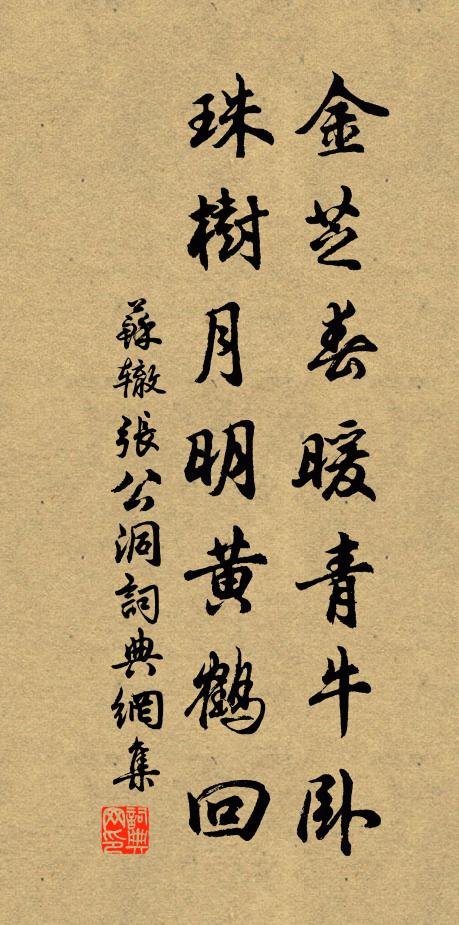 金芝春暖青牛卧
珠樹月明黄鶴回
蘇辙張公洞詞典網集
詞典網印